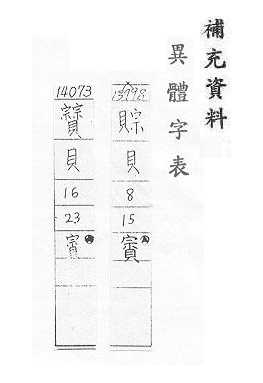 補充資料
異體字表
賩
貝
8
15
賓
14073
貝
16
23
賓